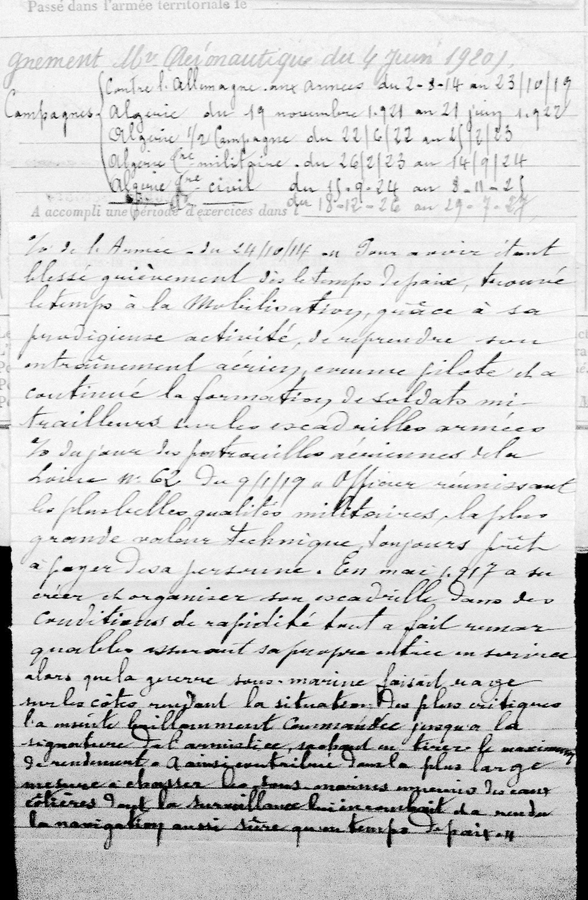 Passé dans l'armée territoriale le
gnement Mre Aéronautique du 4 Juin 1920).
Contre l'Allemagne aux armées du 2-8-14 au 23/10/19
Campagnes Algérie du 19 novembre 1921 au 21 juin 1922
Algérie 1/2 Campagne du 22/6/22 au 25/2/23
Algérie militaire du 26/2/23 au 14/9/24
Algérie civil du 15-9-24 au 8-11-25
du 18-12-26 au 29-7-27
A accompli une période d'exercices dans l
% de l'Armée du 24/10/14 " Pour avoir étant
blessé grièvement dès le temps de paix, trouvé
le temps à la Mobilisation, grâce à sa
prodigieuse activité, de reprendre son
entraînement aérien comme pilote et a
continué la formation de soldats mi-
trailleurs sur les escadrilles armées
% du jour des patrouilles aériennes de la
Loire N° 62 Du 9/1/19 " Officier réunissant
les plus belles qualités militaires, la plus
grande valeur technique, toujours prêt
à payer de sa personne. En mai 1917 a su
créer et organiser son escadrille dans des
conditions de rapidité tout a fait remar
quables assurant sa propre entrée en service
alors que la guerre sous-marine faisait rage
sur les côtes rendant la situation des plus critiques
l'a ensuite brillamment Commandée jusqu'a la
signature de l'armistice, sachant en tirer le maximum
de rendement. A ainsi contribué dans la plus large
mesure à chasser les sous-marins ennemis des eaux
côtières dont la surveillance lui incombait et a rendu
la navigation aussi sûre qu'en temps de paix. "